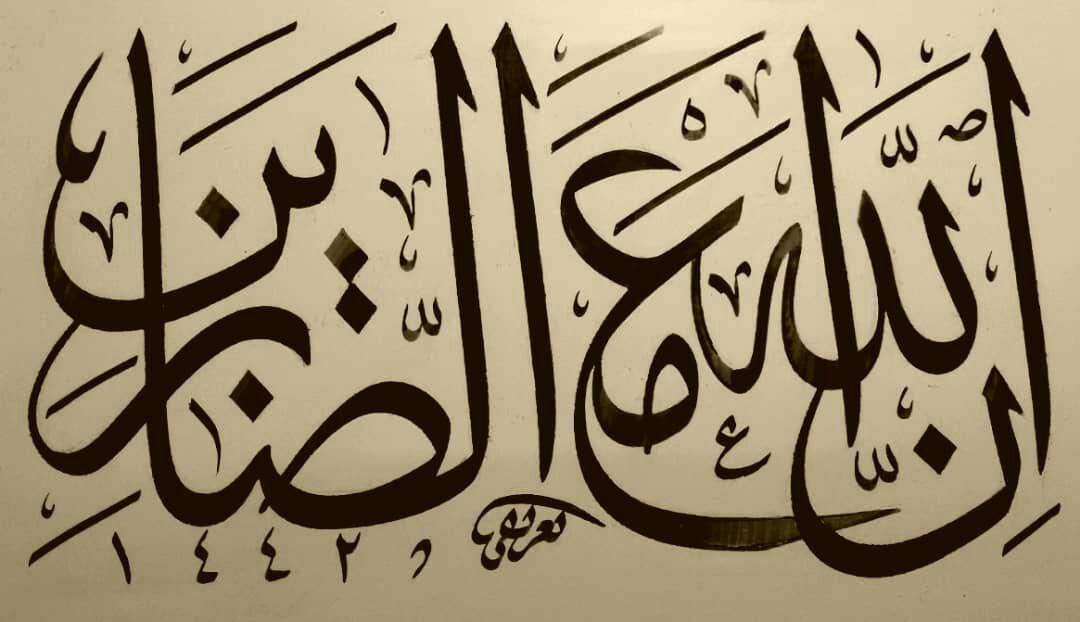 إِنَّ اللَّهَ مَعَ الصَّابِرِينَ
١٤٤٢